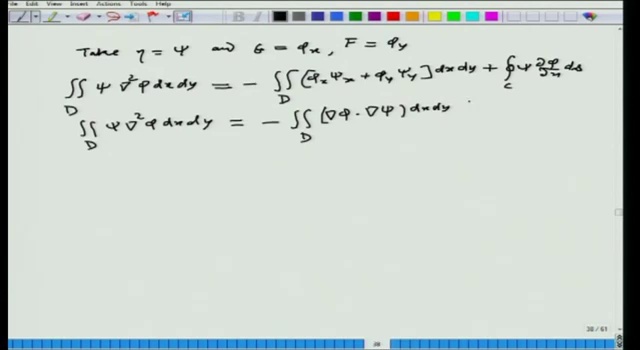 File Edit View Insert Actions Tools Help
Take η = Ψ and G = φ_x, F = φ_y
∬_D Ψ ∇²φ dx dy = - ∬_D [φ_x Ψ_x + φ_y Ψ_y] dx dy + ∮_c Ψ ∂φ/∂n ds
∬_D Ψ ∇²φ dx dy = - ∬_D (∇φ · ∇Ψ) dx dy
38